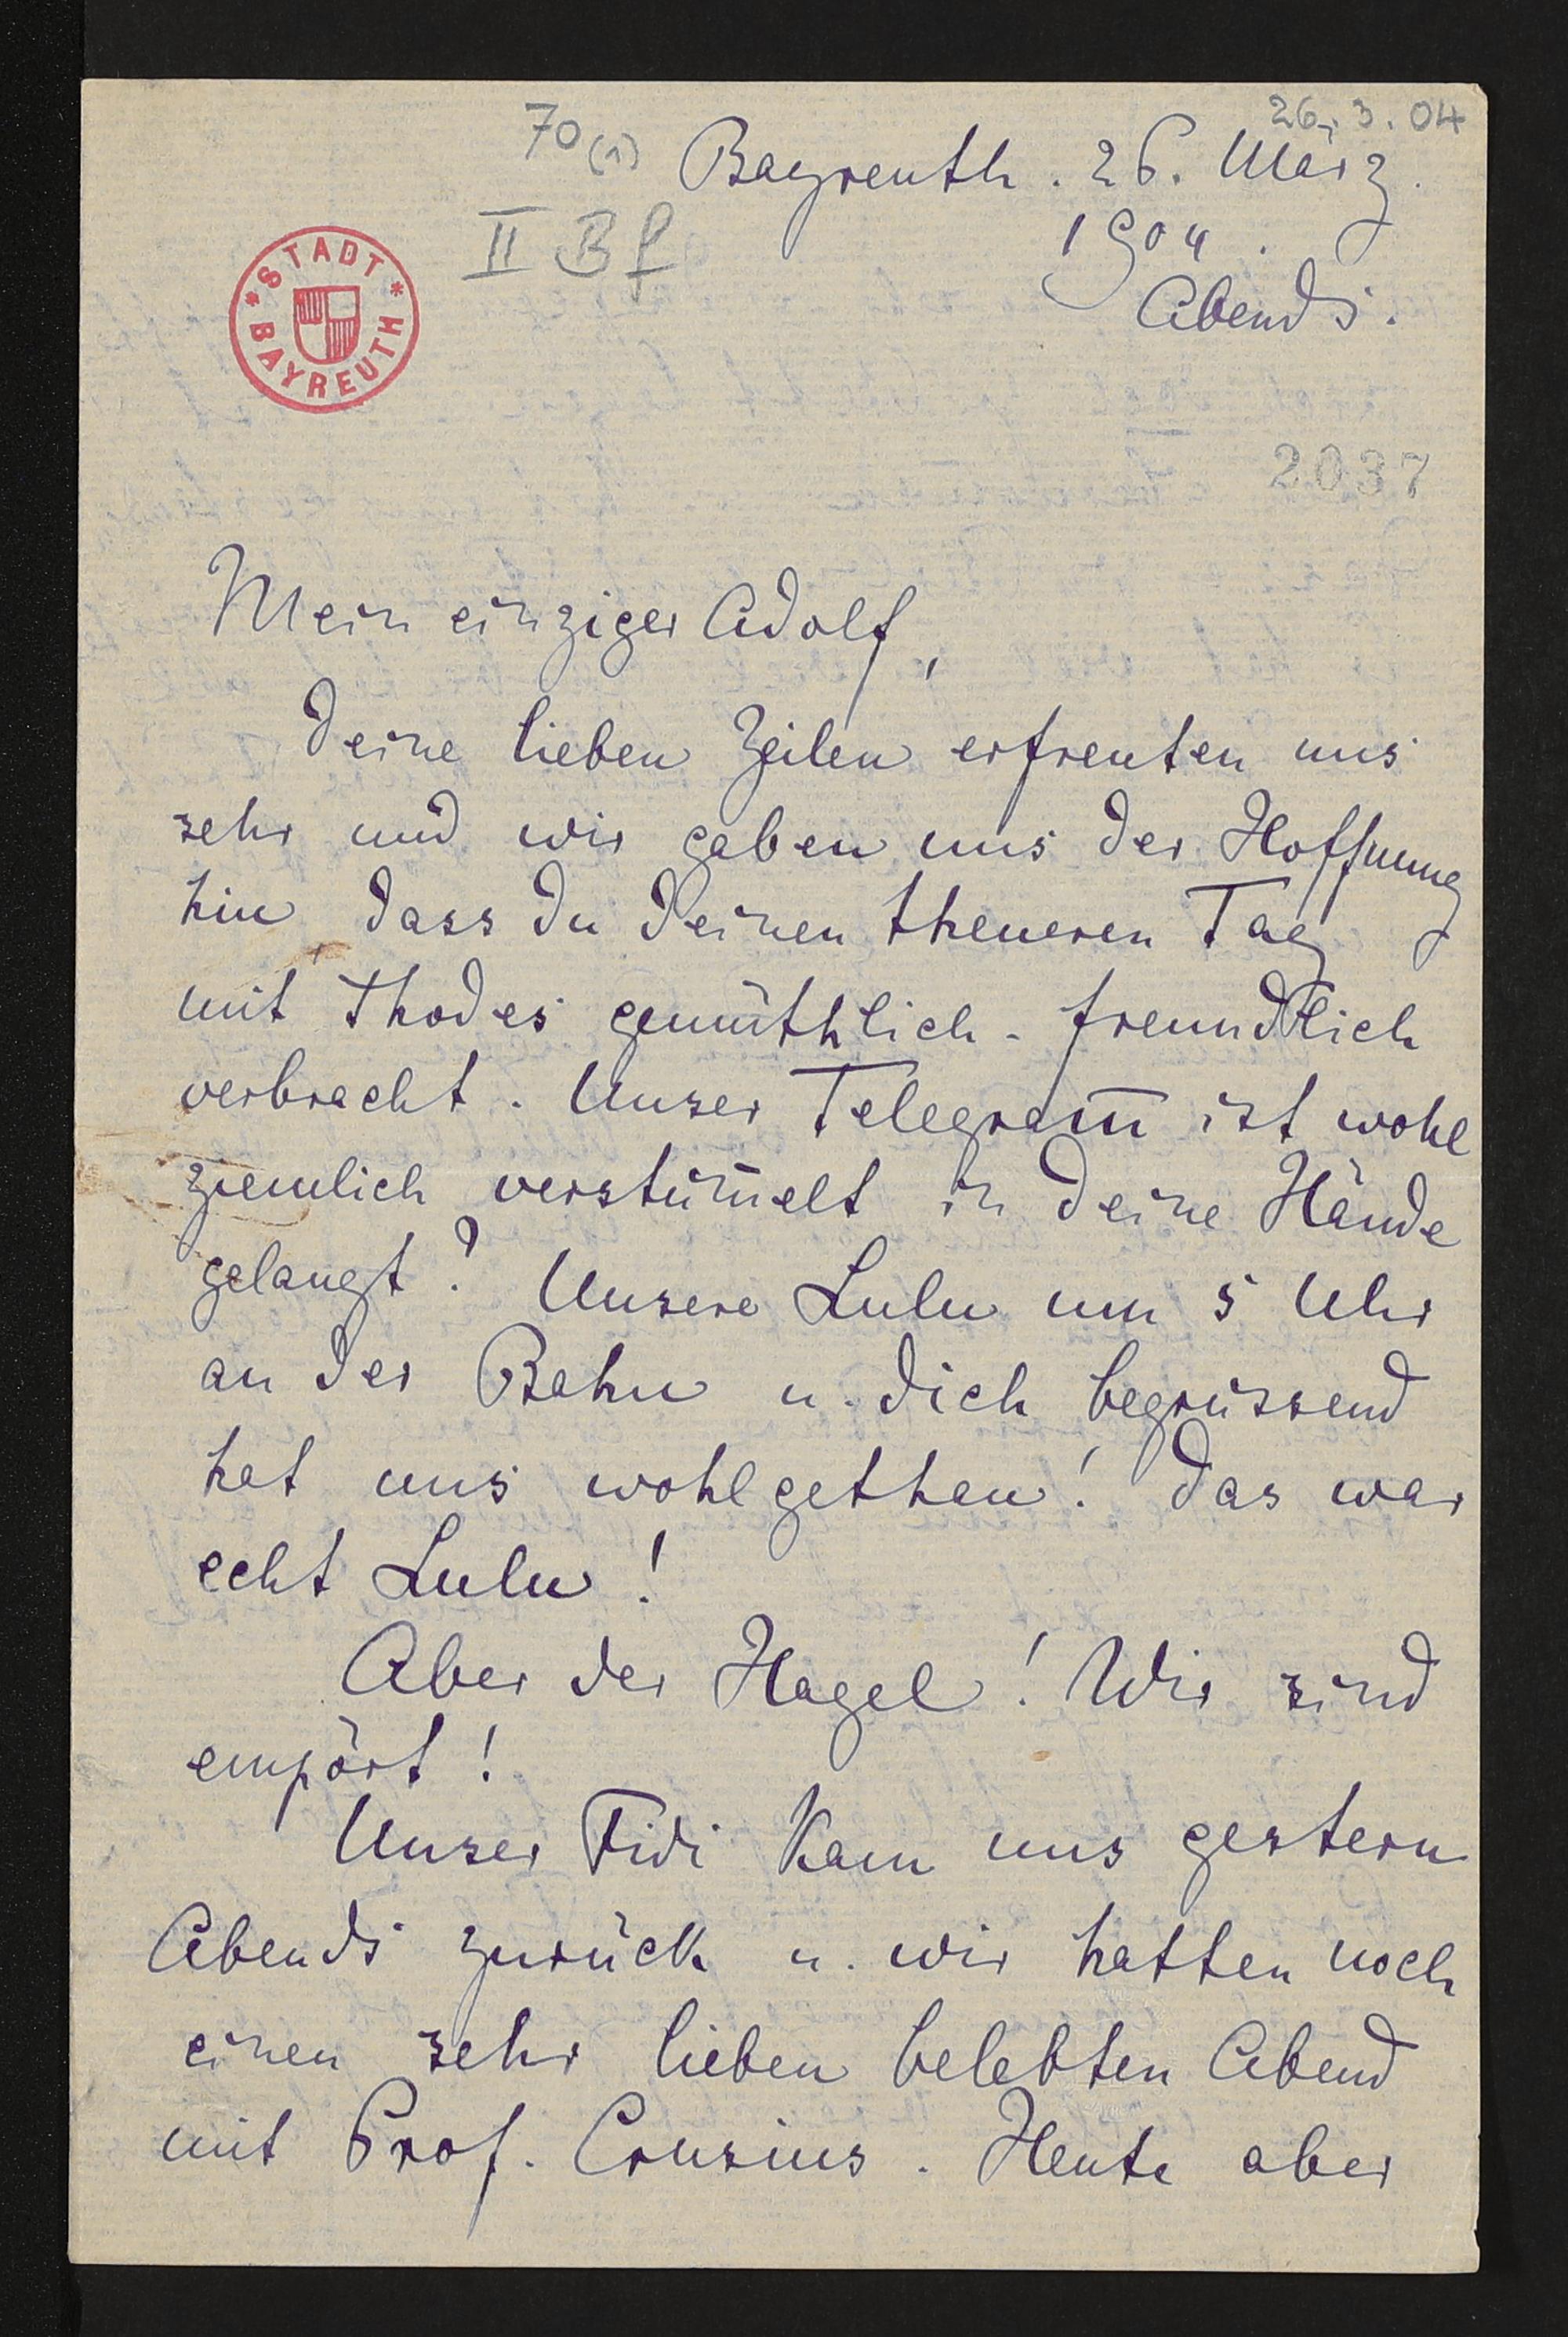 26.3.04
70(1) Bayreuth. 26. März.
II Bf 1904.
Abends.
* STADT *
BAYREUTH
2037
Mein einziger Adolf,
Deine lieben Zeilen erfreuten uns
sehr und wir gaben uns der Hoffnung
hin dass du deinen theueren Tag
mit Thodes gemüthlich-freundlich
verbracht. Unser Telegram̅ ist wohl
ziemlich verstüm̅elt in deine Hände
gelangt? Unsere Lulu um 5 Uhr
an der Bahn u. dich begrüssend
hat uns wohlgethan! Das war
echt Lulu!
Aber der Hagel! Wir sind
empört!
Unser Fidi kam uns gestern
Abends zurück u. wir hatten noch
einen sehr lieben belebten Abend
mit Prof. Crusius. Heute aber